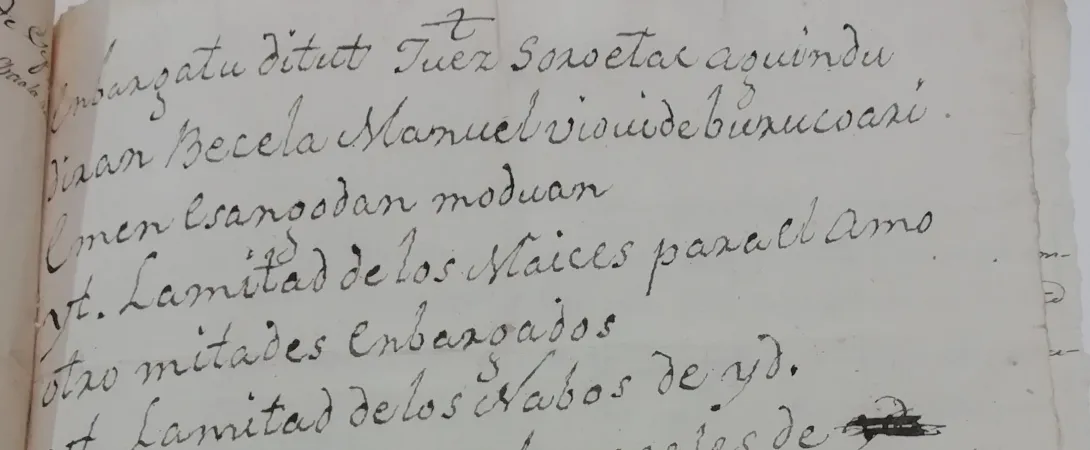 enbargatu ditut Juez Soroetac aguindu
diran Becela Manuel viquideburucoari.
emen esangodan moduan
yt. La mitad de los Maices para el Amo
otro mitades enbargados
yt. La mitad de los Nabos de yd.
de